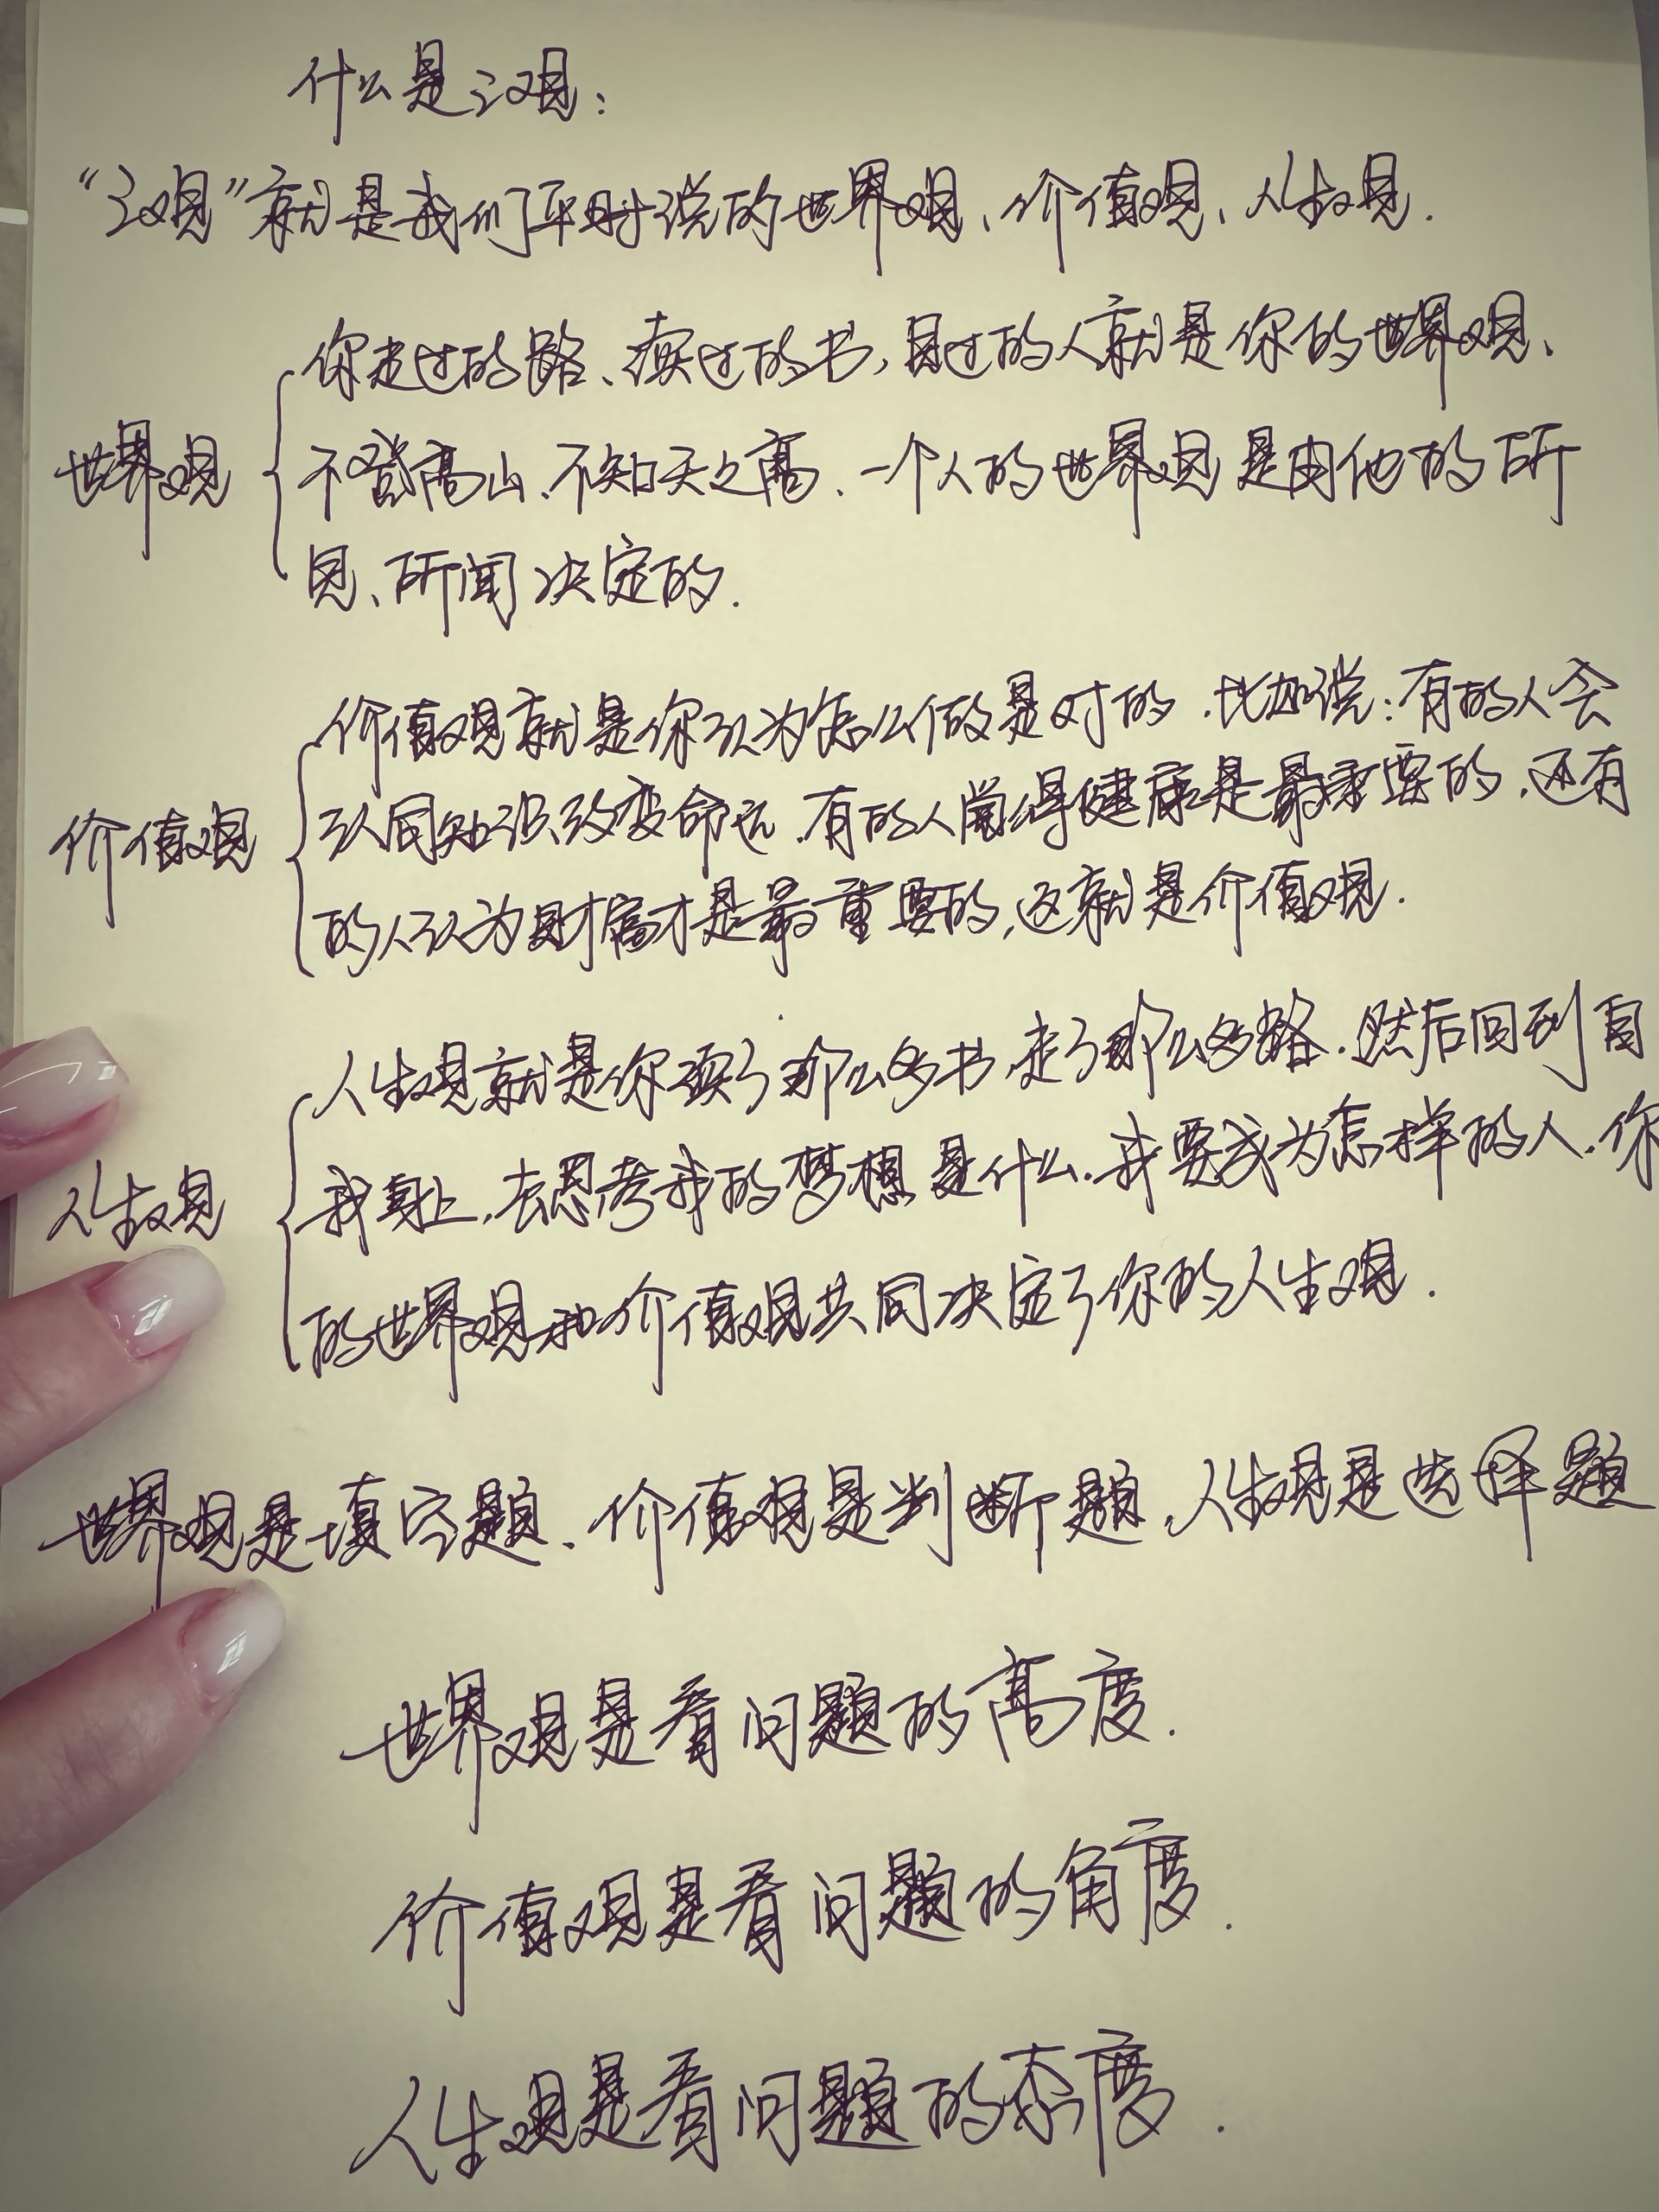 什么是三观：
“三观”就是我们平时说的世界观、价值观、人生观.
你走过的路、读过的书，见过的人就是你的世界观、
世界观
不登高山、不知天之高.一个人的世界观是由他的所
见、所闻决定的.
价值观就是你认为怎么做是对的.比如说：有的人会
价值观
认同知识改变命运.有的人觉得健康是最重要的.还有
的人认为财富才是最重要的，这就是价值观.
人生观就是你读了那么多书，走了那么多路.然后回到自
人生观
我身上，去思考我的梦想是什么.我要成为怎样的人.你
的世界观和价值观共同决定了你的人生观.
世界观是填空题、价值观是判断题，人生观是选择题
世界观是看问题的高度.
价值观是看问题的角度.
人生观是看问题的态度.